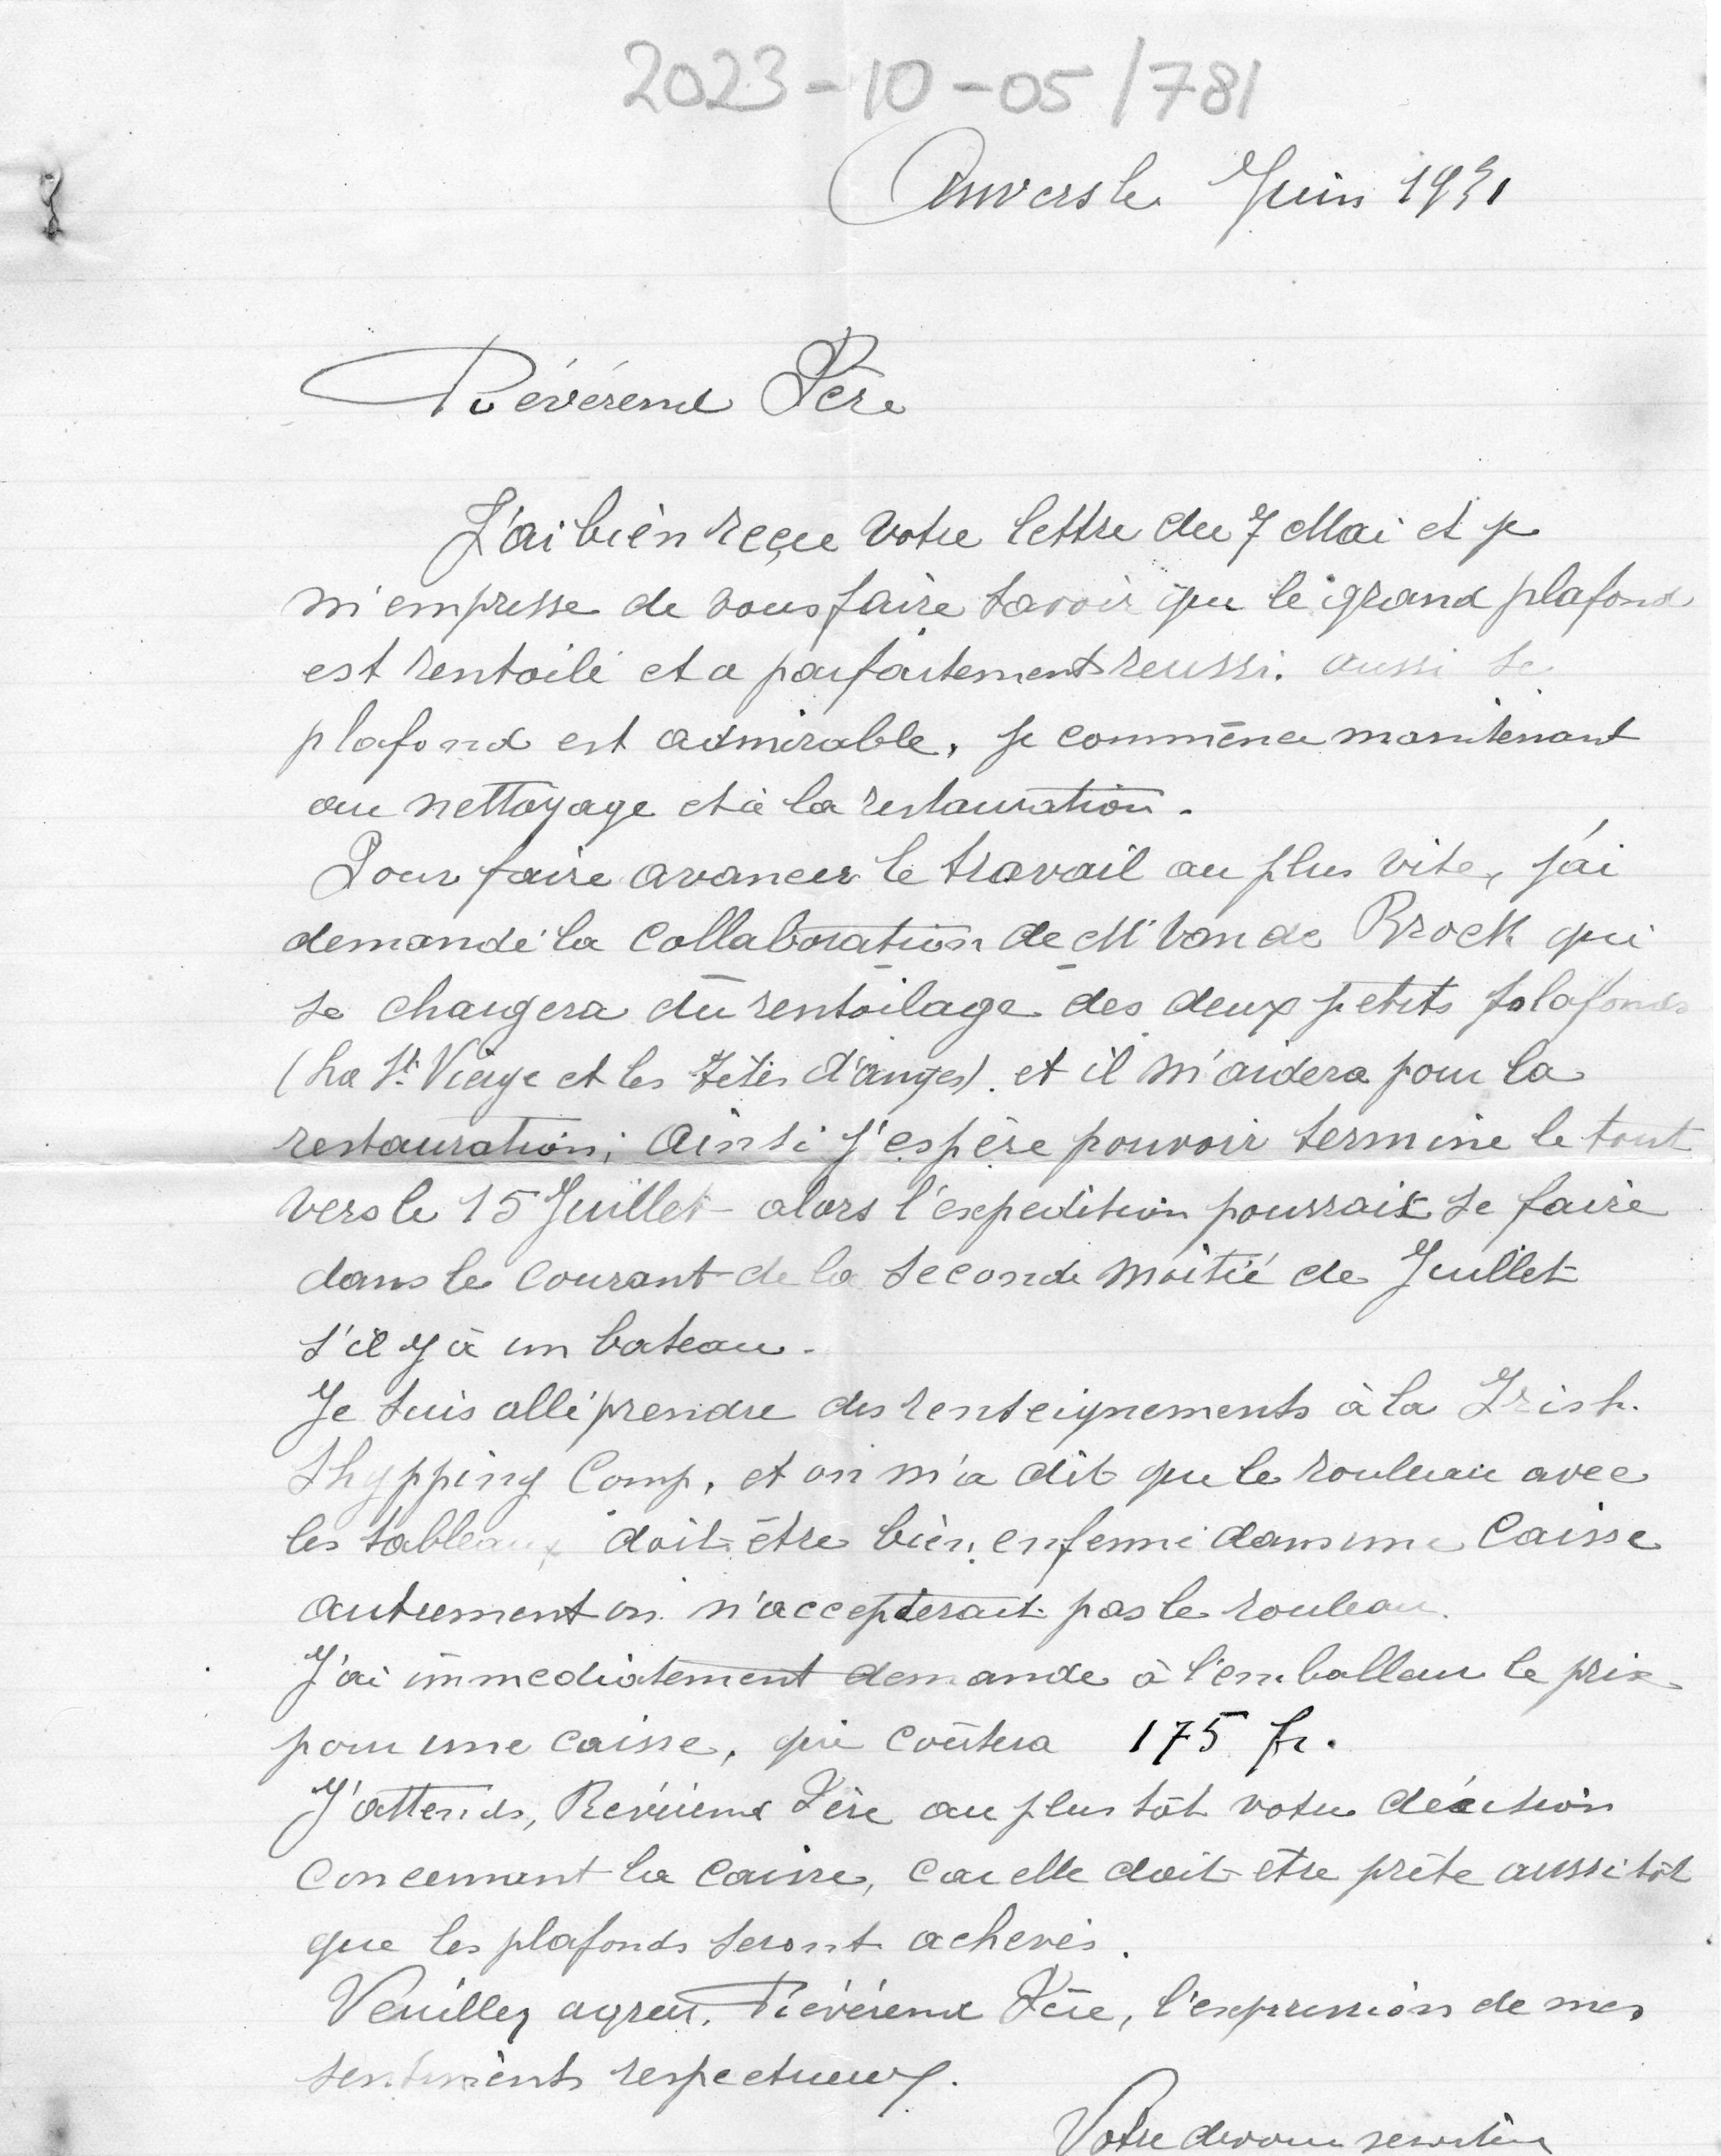 2023-10-05/781
Anvers le Juin 1931
Révérend Père
J'ai bien reçue votre lettre du 7 Mai et je
m'empresse de vous faire savoir que le grand plafond
est rentoilé et a parfaitement reussi. aussi le
plafond est admirable, je commence maintenant
au nettoyage et à la restauration.
Pour faire avancer le travail au plus vite, j'ai
demandé la collaboration de Mr Van de Broek qui
se chargera du rentoilage des deux petits plafonds
(La Ste Vierge et les têtes d'anges). et il m'aidera pour la
restauration; Ainsi j'espère pouvoir terminé le tout
vers le 15 Juillet - alors l'expedition pourrait se faire
dans le courant de la seconde moitié de Juillet
s'il y à un bateau.
Je suis allé prendre des renseignements à la Irish.
Shypping Comp, et on m'a dit que le rouleau avec
les tableaux doit être bien enfermé dans une Caisse
autrement on n'accepterait pas le rouleau.
J'ai immediatement demande à l'emballeur le prix
pour une caisse, qui coûtera 175 fr.
J'attends, Révérend Père au plus tôt votre décision
concernant la Caisse, car elle doit être prête aussitôt
que les plafonds seront achevés.
Veuillez agreer, Révérend Père, l'expression de mes
sentiments respectueux.
Votre devoué serviteur